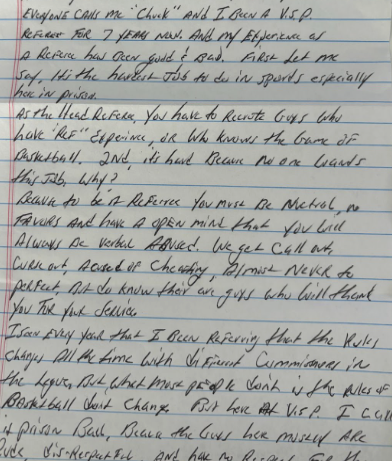 Everyone calls me "Chuck" And I Been A V.S.P.
Referee For 7 years now. And my Experience as
a Referee has Been good & Bad. First Let me
say, It's the hardest Job to do in sports especially
here in prison.
As the Head Referee, You have to Recruite Guys who
have "Ref" Experience, or who knows the Game of
Basketball. 2nd, it's hard Because no one wants
this Job, Why?
Because to be A Referee You must Be Nuetral, no
FAVORS AND have A open mind that you will
Always Be verbal ABused. We get Call out,
Curse out, Acused of Cheating, Almost Never to
perfect, But do know their are guys who will thank
you For your Service
I seen Every year that I Been Refering that the Rules
changes All the time with different Commissioners in
the league, But what most people don't is the rules of
Basketball don't change. But here At V.S.P. I call
it prison Ball, Because the Guys here mostly ARE
Rude, dis-Respectful, And have no Respect For the